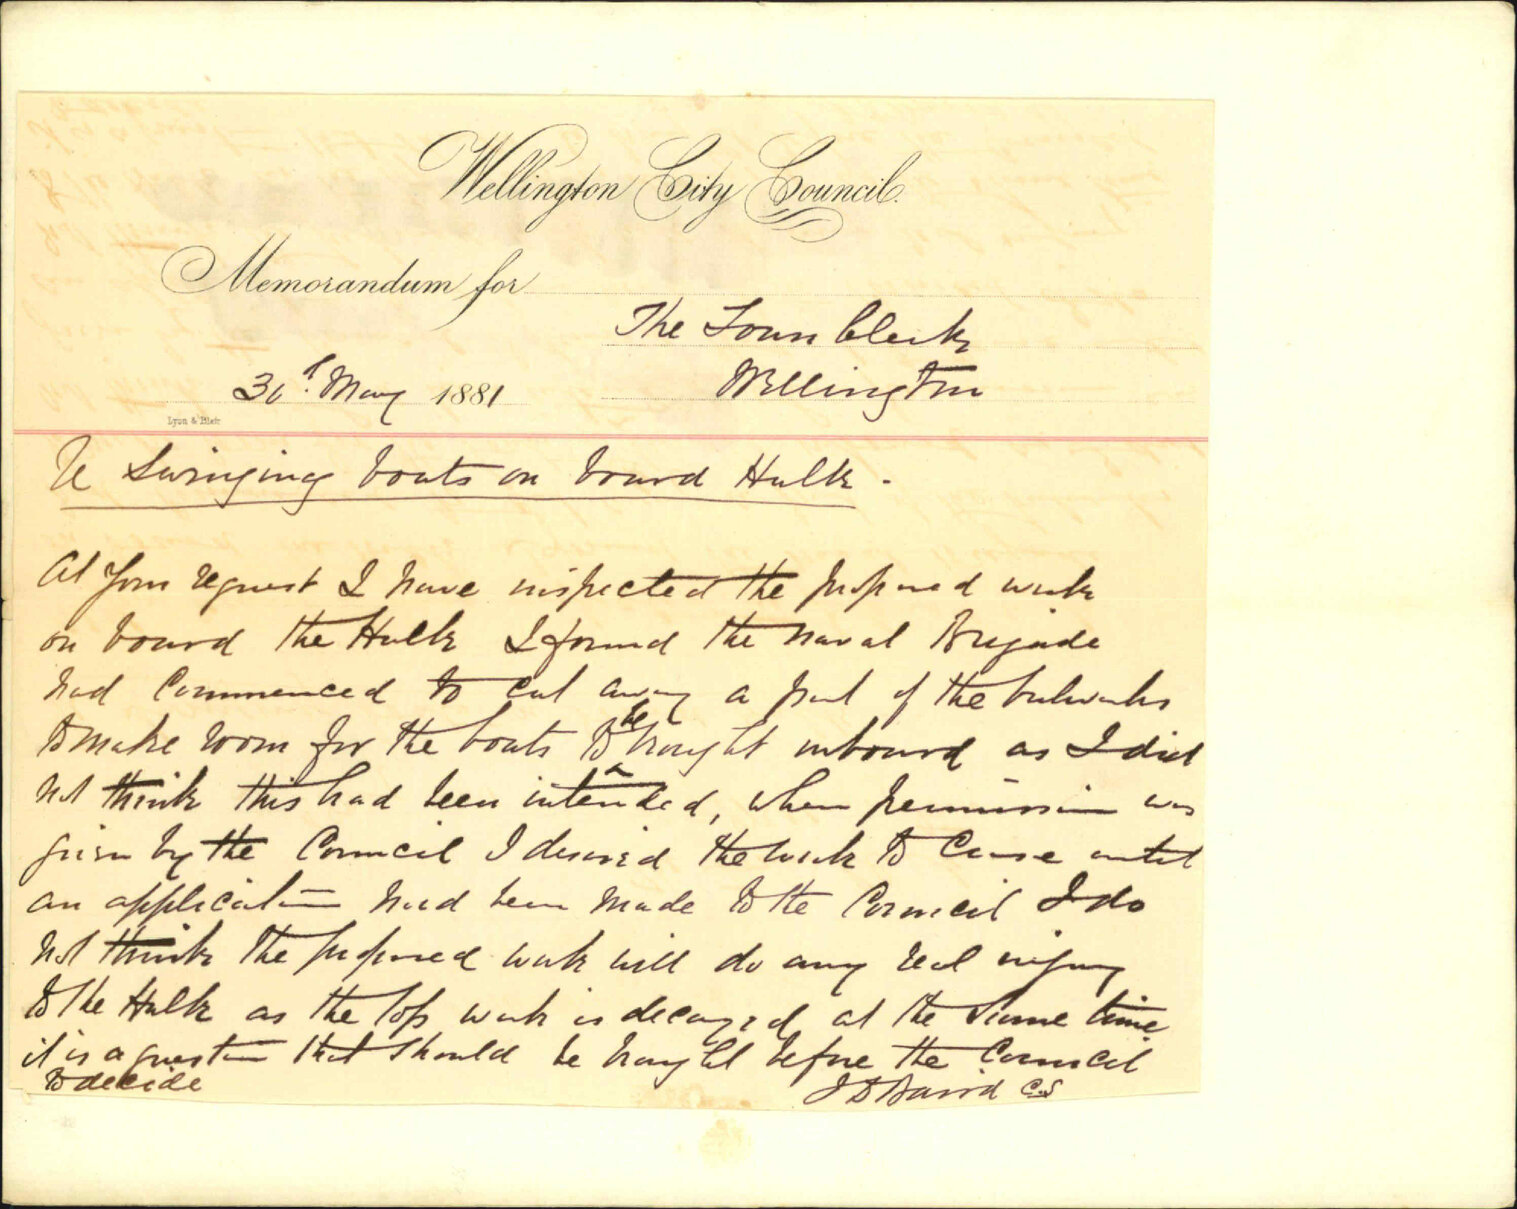 Wellington City Council.
Memorandum for
The Town Clerk
31st May 1881
Wellington
Lyon & Blair
Re Swinging boats on board Hulk.
At your request I have inspected the proposed work
on board the Hulk I found the Naval Brigade
had commenced to cut away a part of the bulwarks
to make room for the boats to be brought inboard as I did
not think this had been intended, when permission was
given by the Council I desired the work to cease until
an application had been made to the Council I do
not think the proposed work will do any real injury
to the Hulk as the top work is decayed, at the same time
it is a question that should be brought before the Council
to decide
J D Baird C.S